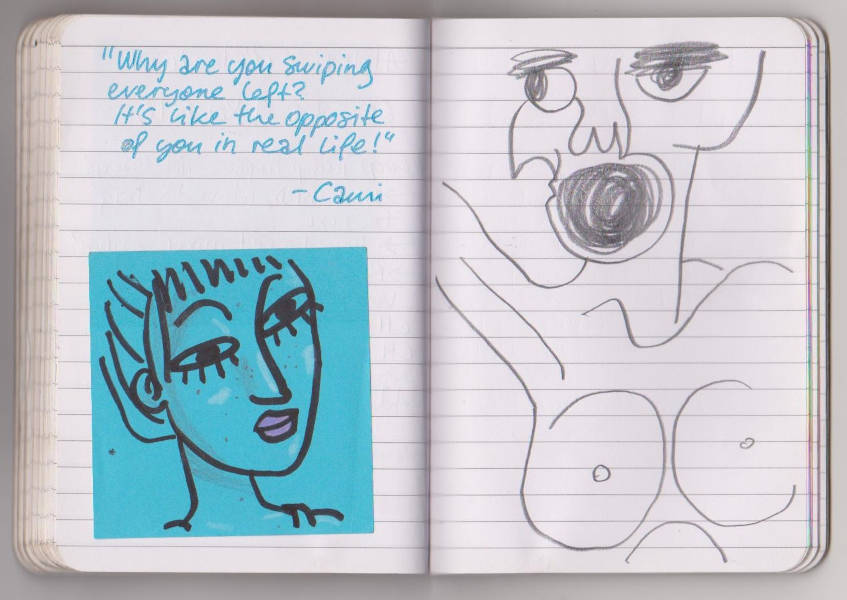 "Why are you swiping
everyone left?
It's like the opposite
of you in real life!"
- Cami